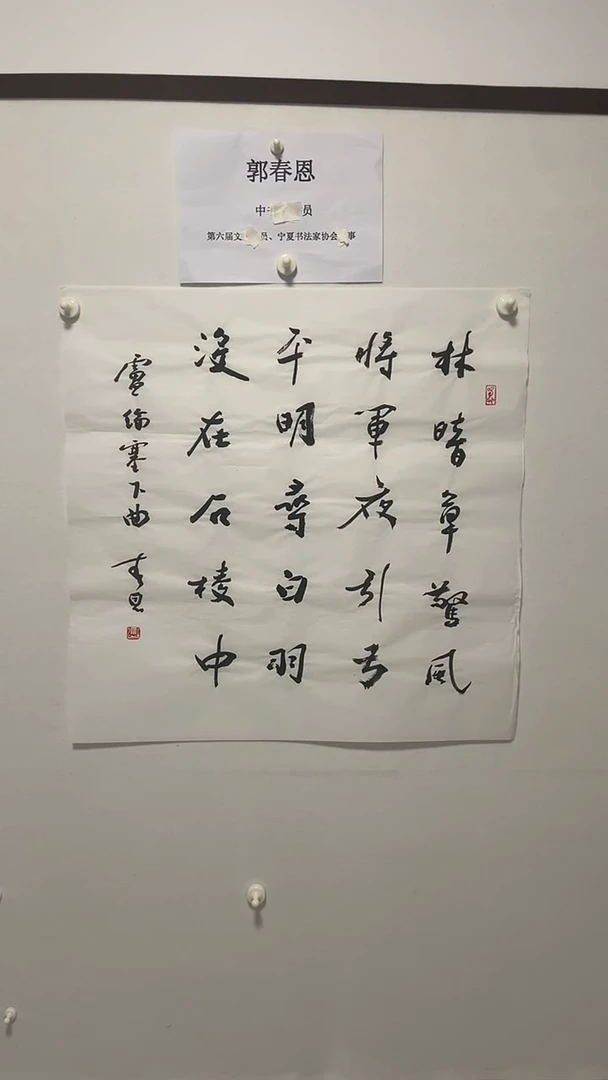 郭春恩
中 员
第六届文 员、宁夏书法家协会 事
林暗草驚風
將軍夜引弓
平明尋白羽
沒在石棱中
盧綸塞下曲 春恩